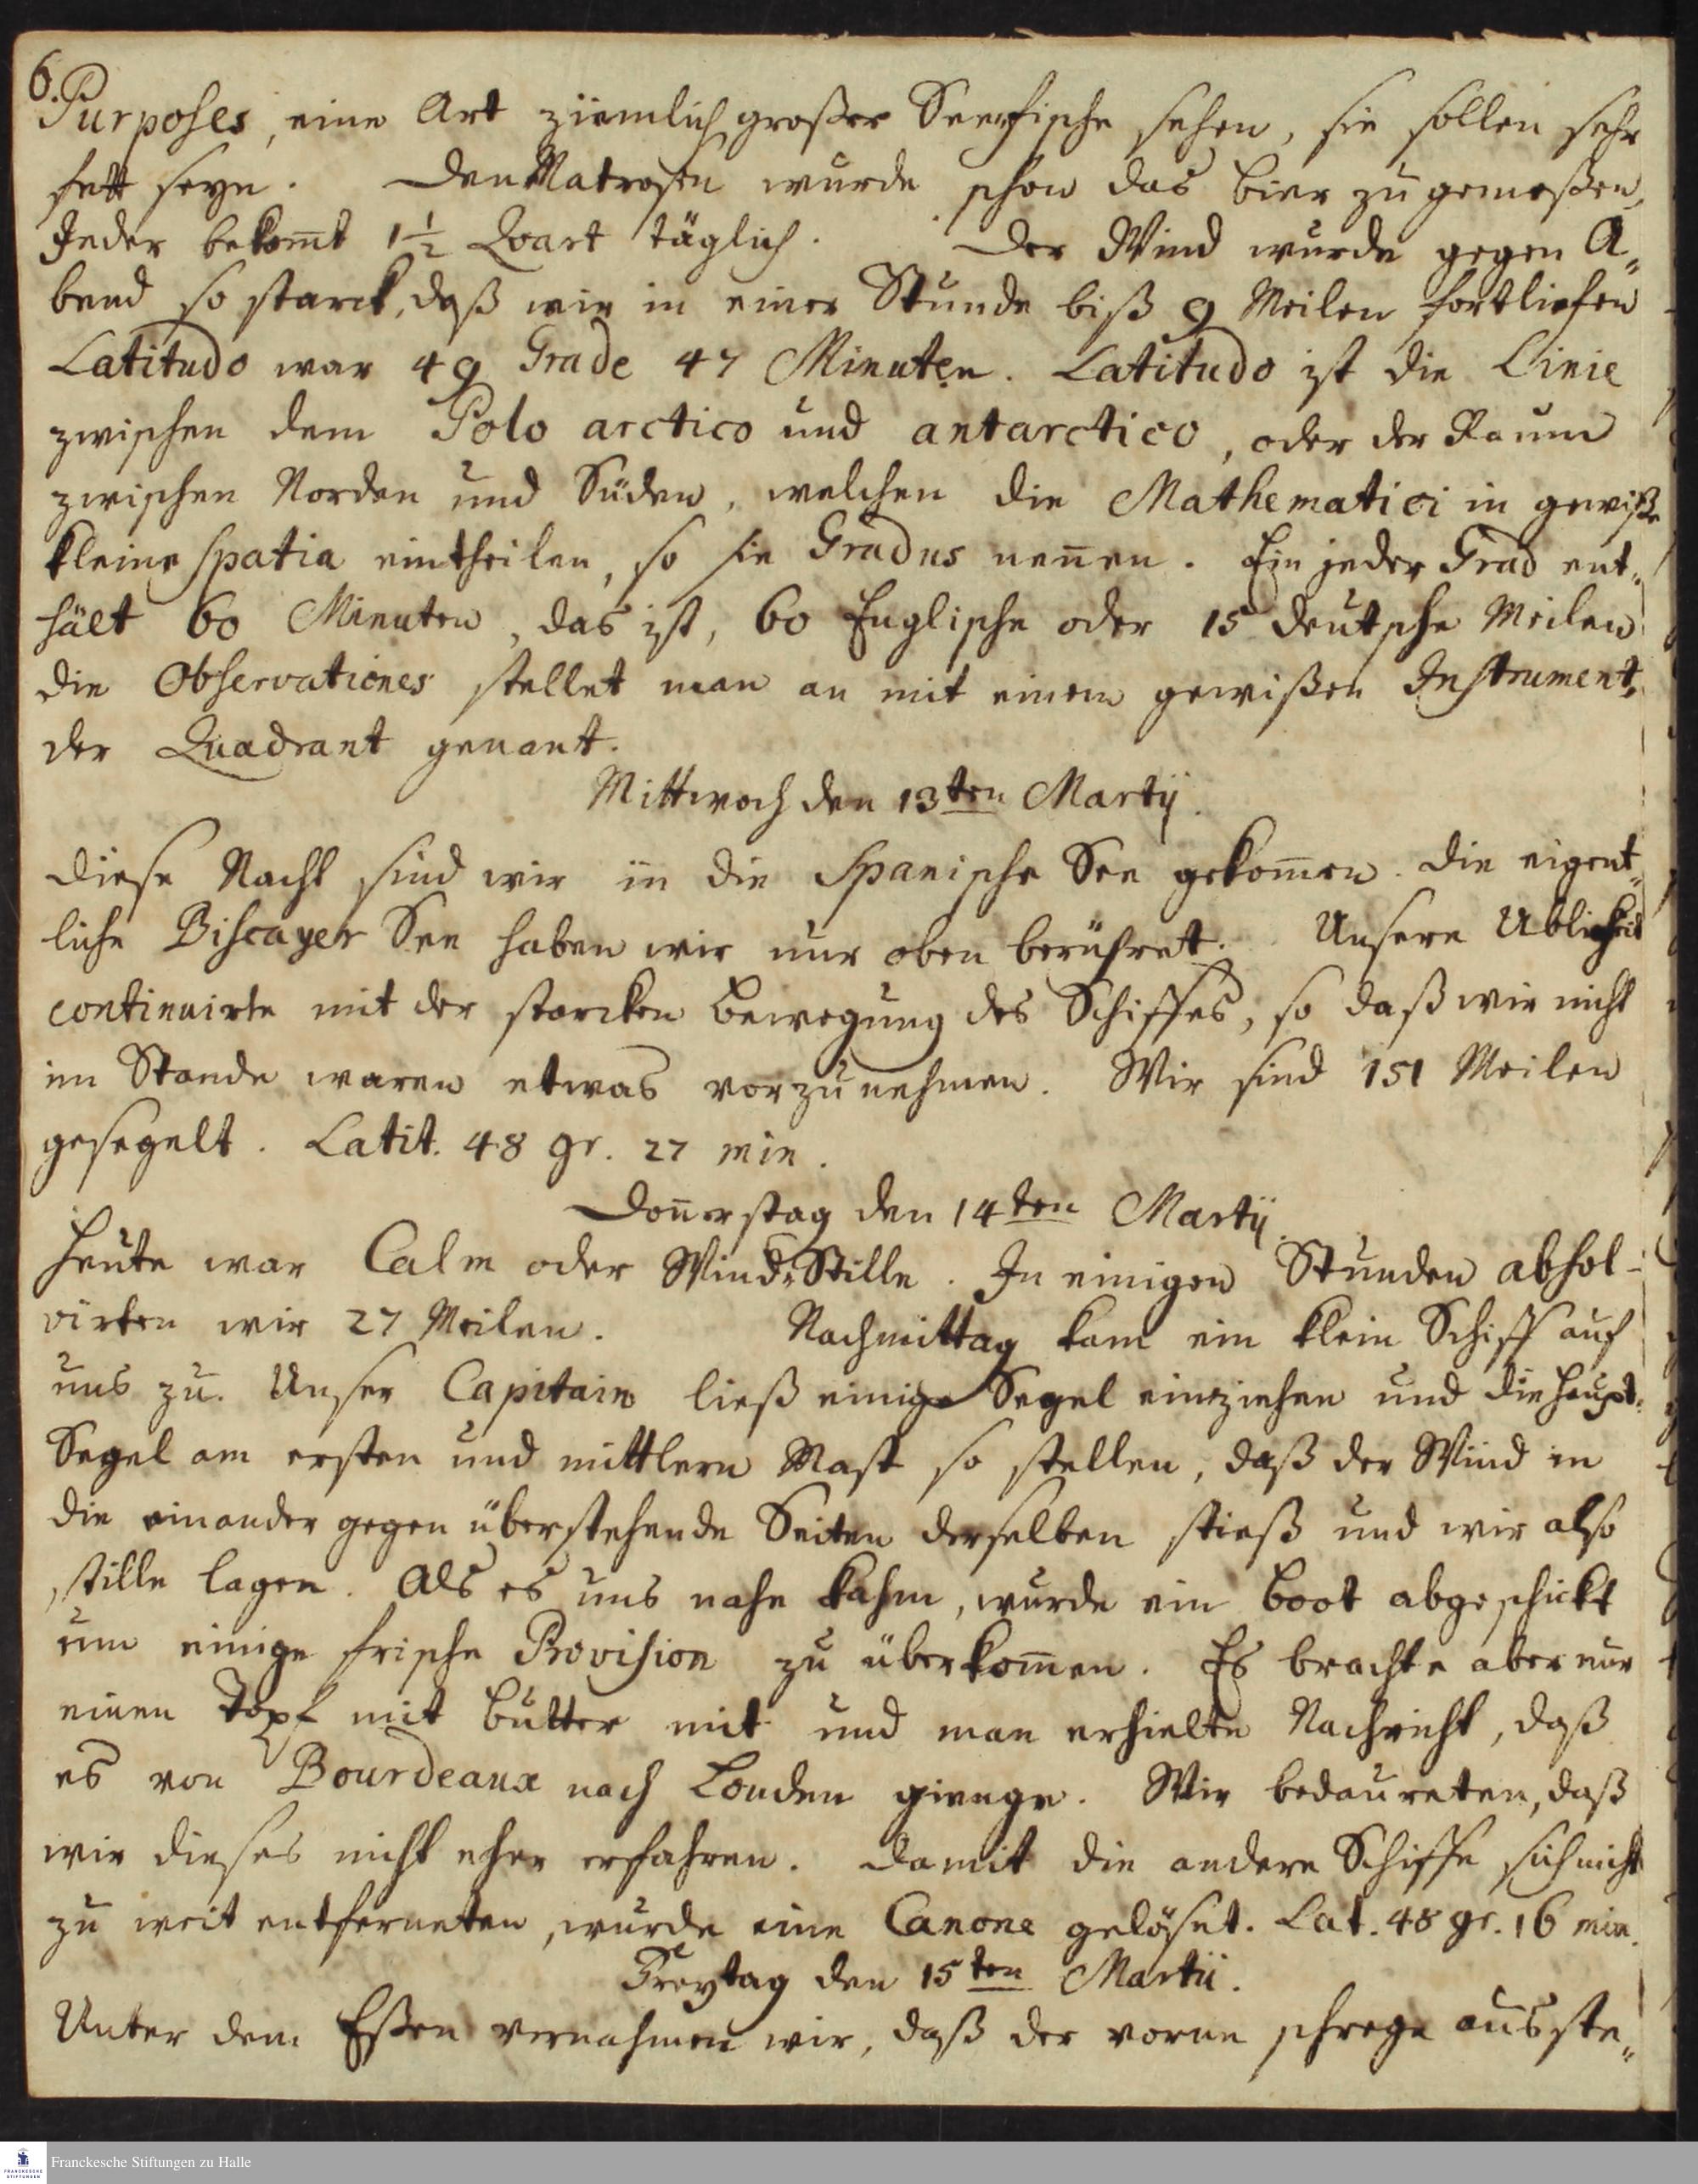 6.
Purposes, eine Art ziemlich großer Seefische sehen, sie sollen sehr
fett seyn. Den Matrosen wurde schon das bier zugemeßen,
Jeder bekom̄t 1½ Quart täglich. Der Wind wurde gegen A„
bend so starck, daß wir in einer Stunde biß 9 Meilen fortliefen
Latitudo war 49 Grade 47 Minuten. Latitudo ist die Linie
zwischen dem Polo arctico und antarctico, oder der Raum
zwischen Norden und Süden, welchen die Mathematici in gewiße
kleine spatia eintheilen, so sie Gradus nen̄en. Ein jeder Grad ent„
hält 60 Minuten, das ist, 60 Englische oder 15 deutsche Meilen
die Observationes stellet man an mit einem gewißen Instrument,
der Quadrant genant.
Mittwoch den 13ten Martij.
diese Nacht sind wir in die Spanische See gekom̄en. die eigent„
liche Biscayer See haben wir nur oben berühret. Unsere Ublichkeit
continuirte mit der starcken bewegung des Schiffes, so daß wir nicht
im Stande waren etwas vorzunehmen. Wir sind 151 Meilen
gesegelt. Latit. 48 gr. 27 min.
Don̄erstag den 14ten Martij.
Heute war Calm oder Wind-Stille. In einigen Stunden absol-
virten wir 27 Meilen. Nachmittag kam ein klein Schiff auf
uns zu. Unser Capitain ließ einige Segel einziehen und die Haupt-
Segel am ersten und mittlern Mast so stellen, daß der Wind in
die einander gegen überstehende Seiten derselben stieß und wir also
stille lagen. Als es uns nahe kahm, wurde ein boot abgeschickt
um einige frische Provision zu überkom̄en. Es brachte aber nur
einen Topf mit butter mit und man erhielte Nachricht, daß
es von Bourdeaux nach London gienge. Wir bedaureten, daß
wir dieses nicht eher erfahren. Damit die andere Schiffe sich nicht
zu weit entferneten, wurde eine Canone gelöset. Lat. 48 gr. 16 min.
Freytag den 15ten Martii.
Unter dem Eßen vernahmen wir, daß der vorne schrege ausste„
Franckesche Stiftungen zu Halle
FRANCKESCHE
STIFTUNGEN